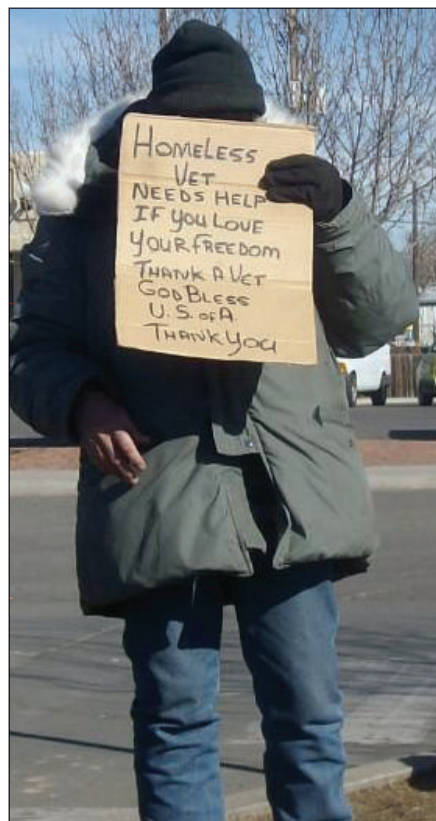 HOMELESS
VET
NEEDS HELP
IF YOU LOVE
YOUR FREEDOM
THANK A VET
GOD BLESS
U.S. OF A
THANK YOU